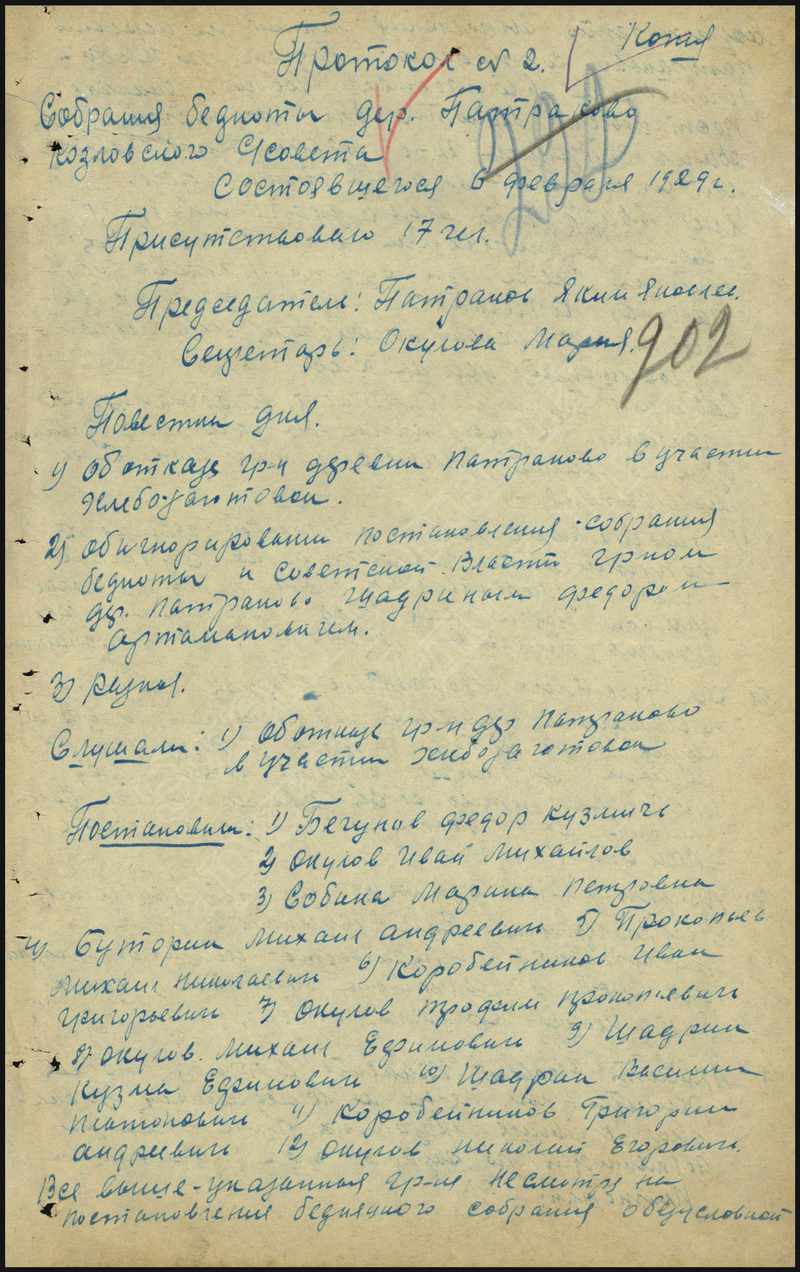 Копия
Протокол № 2.
Собрания бедноты дер. Патраково
Козловского С/совета
Состоявщегося 6 февраля 1929 г.
Присутствовало 17 чел.
Председатель: Патраков Яким
Секретарь: Окулова Мария.
902
Повестка дня.
1) Об отказе гр-н деревни Патраково в участии
хлебозаготовок.
2) Обигнорировании постановления собрания
бедноты и советской власти гр-ном
дер. Патраково Щадриным Федором
Артамановичем.
3) Разная.
Слушали: 1) Об отказе гр-н дер Патраково
в участии хлебозаготовок
Постановили: 1) Бегунов Федор Кузмичь
2) Окулов Иван Михайлов
3) Собина Марина Петровна
4) Буторин Михаил Андреевич 5) Прокопьев
Михаил Николаевич 6) Коробейников Иван
Григорьевич 7) Окулов Трофим Прокопьевич
8) Окулов Михаил Ефимович 9) Щадрин
Кузма Ефимович 10) Щадрин Василии
Платонович 11) Коробейников Григории
Андреевич 12) Окулов Николай Егорович.
Все выше-указанная гр-не несмотря на
постановления бедняцкого собрания